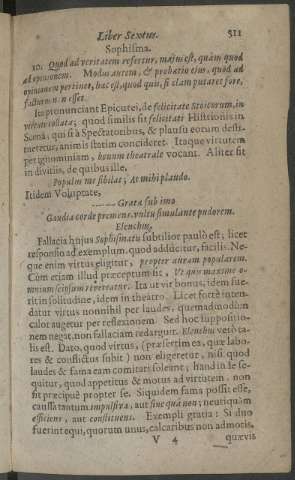 Liber Sextus. 311
Sophisma.
10. Quod ad veritatem refertur, majus est, quàm quod
ad opinionem. Modus autem, & probatio ejus, quòd ad
opinionem pertinet, hac est, quod quis, si clam putaret fore,
facturus non esset.
Ita pronunciant Epicurei, de felicitate Stoicorum, in
virtute collata; quod similis sit felicitati Histrionis in
Scena, qui si à Spectatoribus, & plausu eorum desti-
meretur, animis statim concideret. Itaque virtutem
per ignominiam, bonum theatrale vocant. Aliter sit
in divitiis, de quibus ille,
Populus me sibilat; At mihi plaudo.
Itidem Voluptate,
Grata sub imo
Gaudia corde premens, vultu simulante pudorem.
Elenchus.
Fallacia hujus Sophismatis subtilior paulò est; licet
responsio ad exemplum, quod adducitur, facilis. Ne-
que enim virtus eligitur, propter auram popularem.
Cùm etiam illud præceptum sit, Ut quis maxime o-
mnium seipsum revereatur. Ita ut vir bonus, idem fue-
rit in solitudine, idem in theatro. Licet fortè inten-
datur virtus nonnihil per laudes, quemadmodum
calor augetur per reflexionem. Sed hoc suppositio-
nem negat, non fallaciam redarguit. Elenchus verò ta-
lis est. Dato, quod virtus, (præsertim ea, quæ labo-
res & conflictus subit) non eligeretur, nisi quod
laudes & fama eam comitari soleant; haud inde se-
quitur, quod appetitus & motus ad virtutem, non
sit præcipuè propter se. Siquidem fama possit esse,
caussa tantum impulsiva, aut sine qua non; neutiquam
efficiens, aut constituens. Exempli gratia: Si duo
fuerint equi, quorum unus, calcaribus non admotis,
V 4 quævis